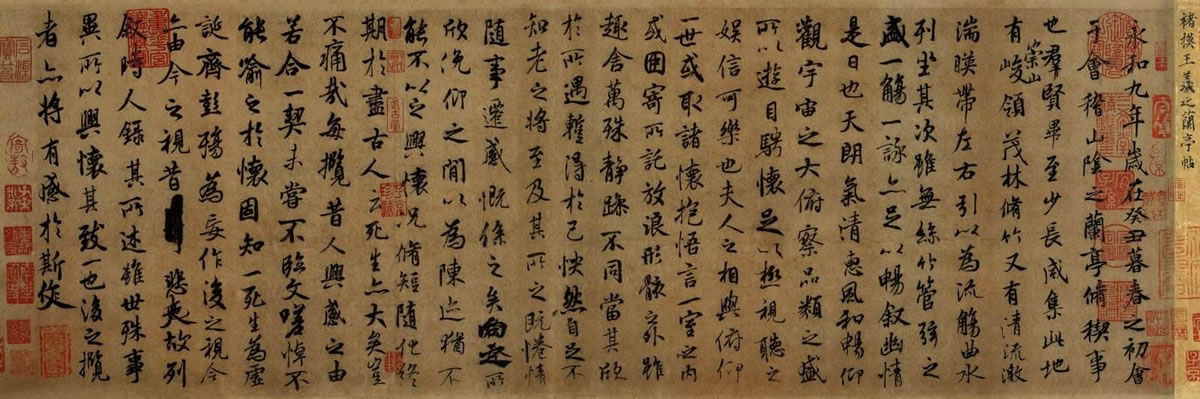 褚摸王羲之蘭亭帖
永和九年歲在癸丑暮春之初會
于會稽山陰之蘭亭脩稧事
也羣賢畢至少長咸集此地
有崇山峻領茂林脩竹又有清流激
湍暎帶左右引以為流觴曲水
列坐其次雖無絲竹管弦之
盛一觴一詠亦足以暢叙幽情
是日也天朗氣清惠風和暢仰
觀宇宙之大俯察品類之盛
所以遊目騁懷足以極視聽之
娛信可樂也夫人之相與俯仰
一世或取諸懷抱悟言一室之內
或因寄所託放浪形骸之外雖
趣舍萬殊静躁不同當其欣
於所遇暫得於己怏然自足不
知老之將至及其所之既惓情
隨事遷感慨係之矣向之所
欣俛仰之閒以為陳迹猶不
能不以之興懷况脩短隨化終
期於盡古人云死生亦大矣豈
不痛哉每攬昔人興感之由
若合一契未嘗不臨文嗟悼不
能喻之於懷固知一死生為虛
誕齊彭殤為妄作後之視今
亦由今之視昔悲夫故列
叙時人錄其所述雖世殊事
異所以興懷其致一也後之攬
者亦將有感於斯文